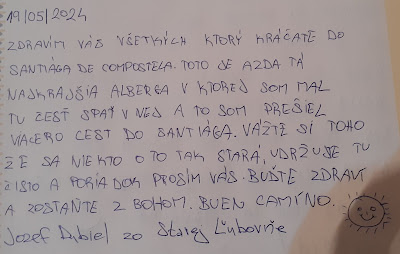 19/05/2024
ZDRAVÍM VÁS VŠETKÝCH KTORÝ KRÁČATE DO
SANTIÁGA DE COMPOSTELA. TOTO JE AZDA TÁ
NAJKRAJŠIA ALBERGA V KTOREJ SOM MAL
TU ČESŤ SPAŤ V NEJ A TO SOM PREŠIEL
VIACERO CEST DO SANTIÁGA. VÁŽTE SI TOHO
ŽE SA NIEKTO O TO TAK STARÁ, UDRŽUJE TU
ČISTO A PORIADOK PROSÍM VÁS. BUĎTE ZDRAVÍ
A ZOSTAŇTE Z BOHOM. BUEN CAMÍNO.
Jozef zo Starej Ľubovňe